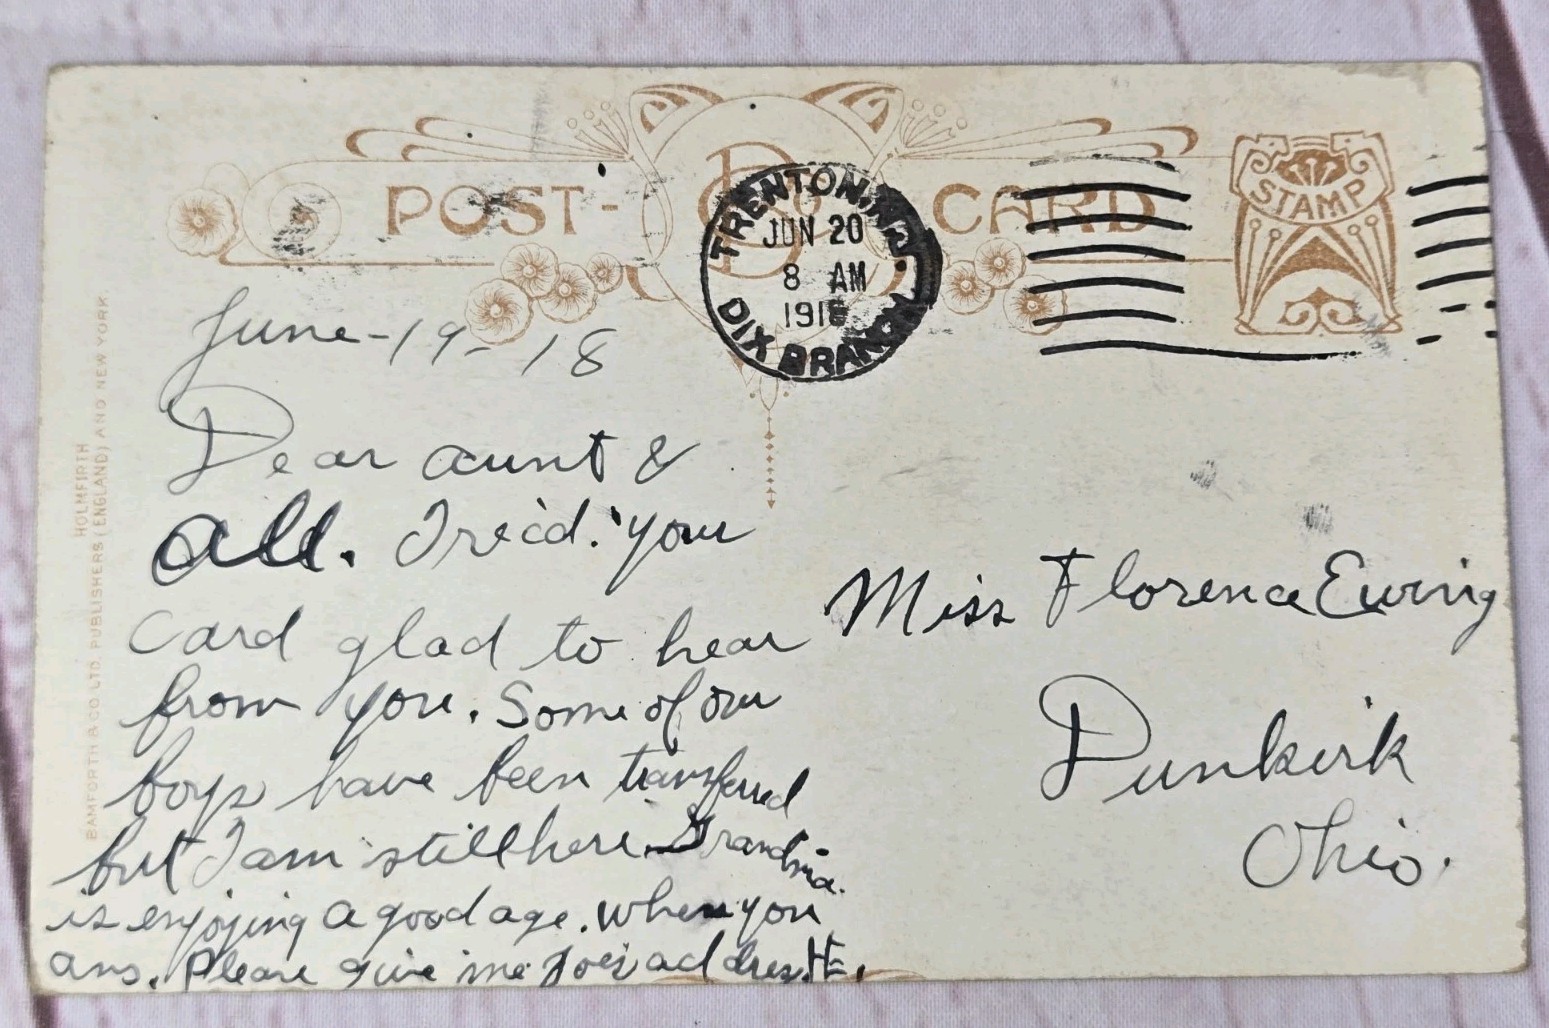 POST-CARD
STAMP
TRENTON, N.J.
JUN 20
8 AM
1918
DIX BRANCH
HOLMFIRTH
BAMFORTH & CO. LTD. PUBLISHERS (ENGLAND) AND NEW YORK.
June-19-18
Dear aunt &
all. I rec'd. your
card glad to hear
from you. Some of our
boys have been transferred
but I am still here. Grandma.
is enjoying a good age. when you
ans. Please give me Joe's address.
Miss Florence Ewing
Dunkirk
Ohio.